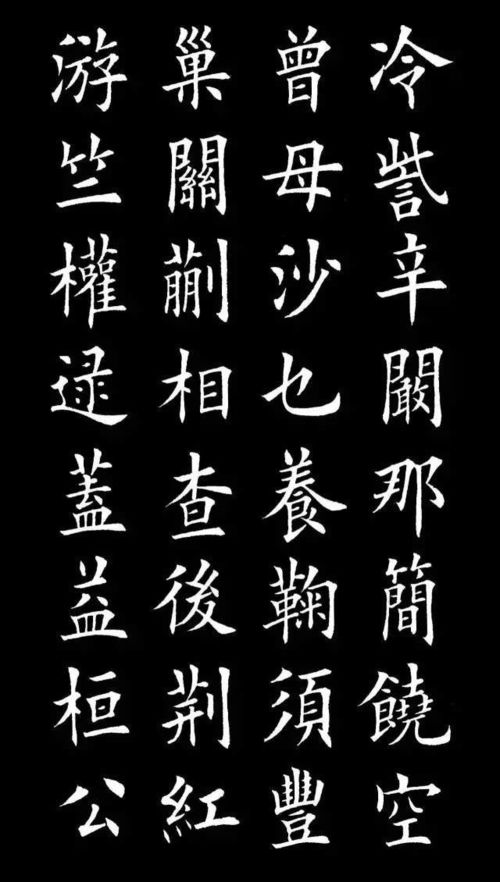 冷訾辛闞那簡饒空
曾母沙乜養鞠須豐
巢關蒯相查後荊紅
游竺權逯蓋益桓公